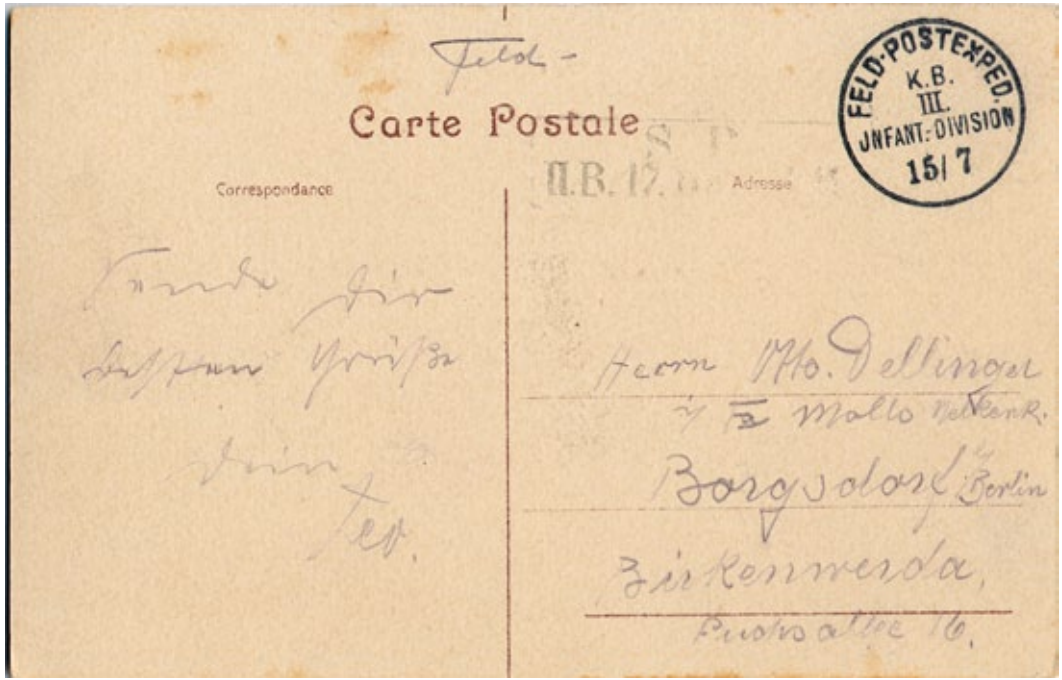 Feld-
Carte Postale
FELD-POSTEXPED.
K.B.
III.
JNFANT.-DIVISION
15/7
II.B. 17.
Correspondance
Adresse
Sende Dir
besten Grüße
Dein
Herrn Otto. Dellinger
Borgsdorf Berlin
Birkenwerda,
16.